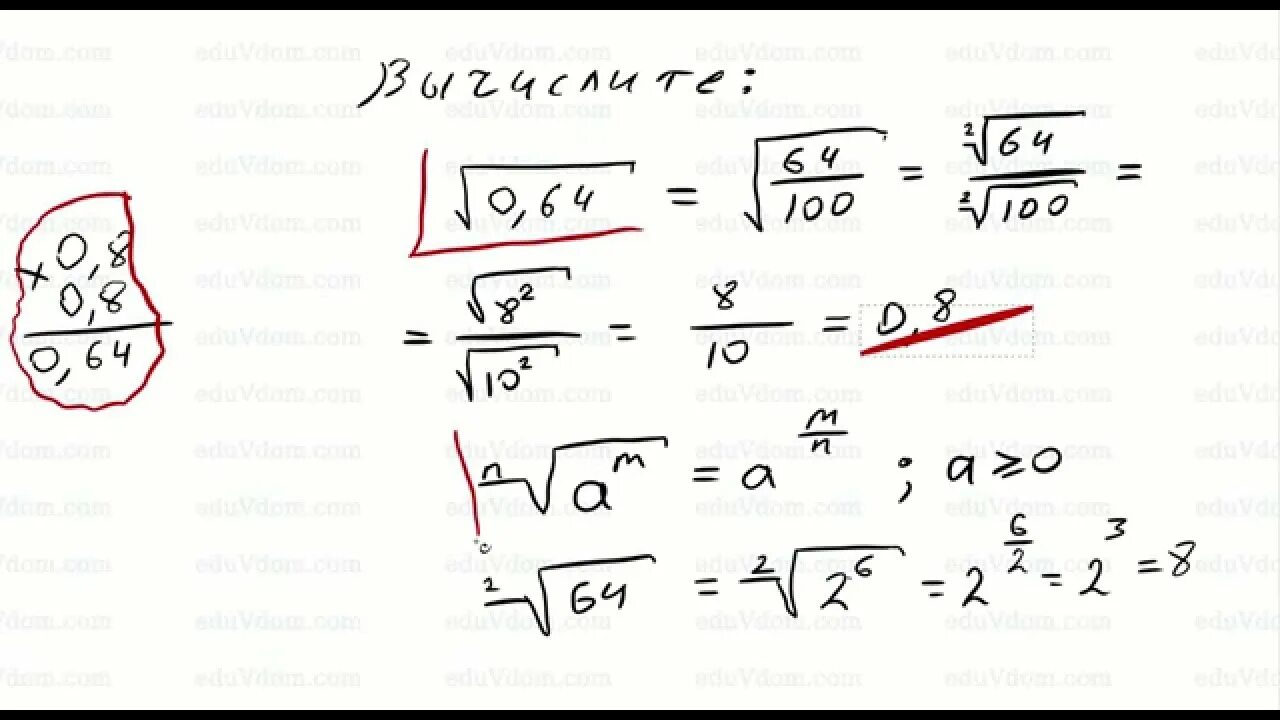 Вычислите:
√0,64 = √(64/100) = ²√64/²√100 =
= √8²/√10² = 8/10 = 0,8
ⁿ√aᵐ = a^(m/n) ; a ≥ 0
²√64 = ²√2⁶ = 2^(6/2) = 2³ = 8
× 0,8
0,8
0,64
eduVdom.com